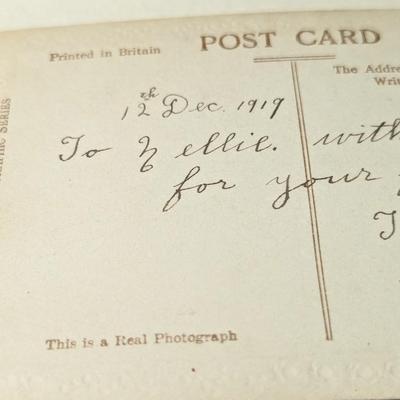 Printed in Britain
POST CARD
The Addre
Writ
SERIES
12th Dec. 1919
To Nellie. with
for your
T
This is a Real Photograph